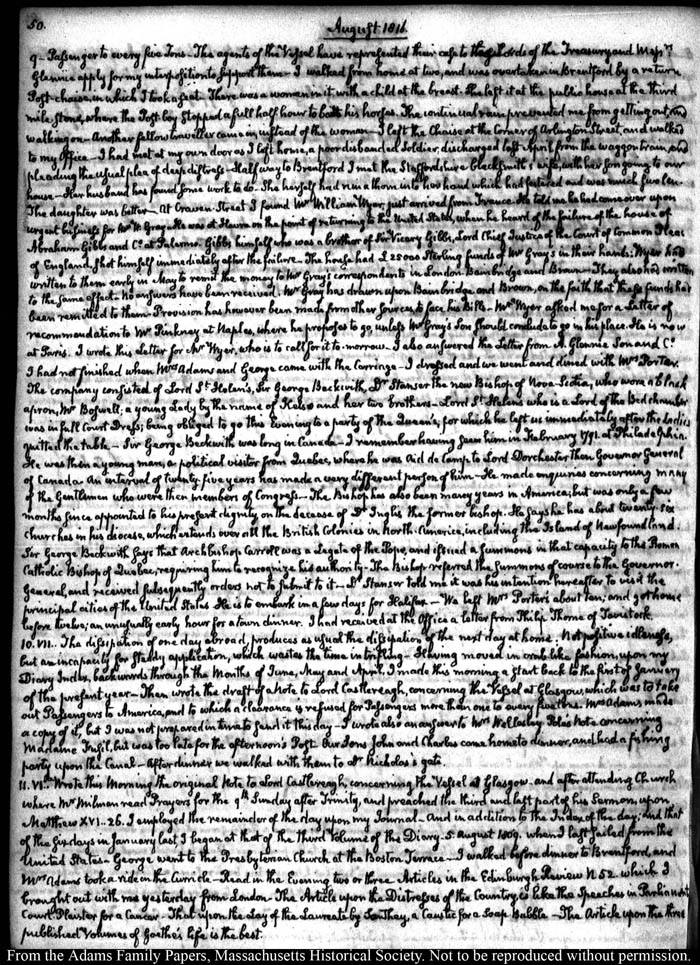 50.
August 1816.
9— Passenger to every five Tons— The agents of the Vessel have represented their case to the Lords of the Treasury and Messrs
Glennie apply for my interposition to support them— I walked from home at two, and was overtaken in Brentford by a return
Post-chaise, in which I took a seat— There was a woman in it with a child at the breast. She left it at the public house at the third
mile stone, where the Post boy stopped a full half hour to bait his horses. The continual rain prevented me from getting out, and
walking on— Another fellow traveller came in, instead of the woman— I left the Chaise at the corner of Arlington Street, and walked
to my Office— I had met at my own door as I left home, a poor disbanded Soldier, discharged last April from the waggon train, and
pleading the usual plea of deep distress— Half way to Brentford I met the Staffordshire blacksmith's wife, with her son going to our
house— Her husband has found some work to do. She herself had run a thorn into her hand which had festered and was much swollen—
The daughter was better— At Craven Street I found Mr William Wyer, just arrived from France. He told me he had come over upon
urgent business for Mr W. Gray— He was at Havre on the point of returning to the United States, when he heard of the failure of the house of
Abraham Gibbs and Co. at Palermo. Gibbs himself who was a brother of Sir Vicary Gibbs, Lord Chief Justice of the Court of Common Pleas
of England, shot himself immediately after the failure— The house had £25000 Sterling funds of Mr Gray's in their hands. Wyer had
written to them early in May to remit the money to Mr Gray's correspondents in London. Bainbridge and Brown— They also had written
to the same effect— No answers have been received. Mr Gray has drawn upon Bainbridge and Brown, on the faith that these funds had
been remitted to them— Provision has however been made from other sources to face his Bills— Mr Wyer asked me for a Letter of
recommendation to Mr Pinkney at Naples, where he proposes to go, unless Mr Gray's Son should conclude to go in his place. He is now
at Paris. I wrote this Letter for Mr Wyer, who is to call for it to-morrow. I also answered the Letter from A. Glennie Son and Co.
I had not finished when Mrs Adams and George came with the Carriage— I dressed and we went and dined with Mrs Porter.
The company consisted of Lord St. Helen's, Sir George Beckwith, Dr Stanser the new Bishop of Nova-Scotia, who wore a black
apron, Mr Boswell; a young Lady by the name of Kelso and her two brothers— Lord St. Helens who is a Lord of the Bedchamber
was in full Court Dress; being obliged to go this Evening to a party of the Queen's, for which he left us immediately after the Ladies
quitted the table— Sir George Beckwith was long in Canada— I remember having seen him in February 1791. at Philadelphia.
He was then a young man, a political visitor from Quebec, where he was Aid de Camp to Lord Dorchester then Governor General
of Canada. An interval of twenty five years has made a very different person of him— He made enquiries concerning many
of the Gentlemen who were then members of Congress— The Bishop has also been many years in America; but was only a few
months since appointed to his present dignity on the decease of Dr Inglis the former bishop. He says he has about twenty-six
Churches in his diocese, which extends over all the British Colonies in North America, including the Island of Newfoundland.
Sir George Beckwith says that Archbishop Carroll was a Legate of the Pope, and issued a Summons in that capacity to the Roman
Catholic Bishop of Quebec, requiring him to recognize his authority— The Bishop referred the Summons of course to the Governor-
General, and received subsequently orders not to submit to it— Dr Stanser told me it was his intention hereafter to visit the
principal cities of the United States. He is to embark in a few days for Halifax— We left Mrs Porter's about ten, and got home
before twelve; an unusually early hour for a town dinner. I had received at the Office a Letter from Philip Thorne of Tavistock.
10. VII.. The dissipation of one day abroad, produces as usual the dissipation of the next day at home. Not positive idleness,
but an incapacity for steady application, which wastes the time in trifling— Having moved in crab-like fashion, upon my
Diary Index, backwards through the Months of June, May and April, I made this morning a start back to the first of January
of the present year— Then wrote the draft of a Note to Lord Castlereagh, concerning the Vessel at Glasgow, which was to take
out Passengers to America, and to which a clearance is refused for Passengers more than one to every five tons. Mrs Adams made
a copy of it, but I was not prepared in time to send it this day— I wrote also an answer to Mr Wellesley Pole's Note concerning
Madame Fusil, but was too late for the afternoon's Post. Our Sons John and Charles came home to dinner, and had a fishing
party upon the Canal— After dinner we walked with them to Dr Nicholas's gate.
11. VI.. Wrote this Morning the original Note to Lord Castlereagh, concerning the Vessel at Glasgow. and after attending Church
where Mr Milman read Prayers for the 9th Sunday after Trinity, and preached the third and last part of his Sermon, upon
Matthew XVI..26. I employed the remainder of the day upon my Journal— And in addition to the Index of the day; and that
of the six days in January last, I began at that of the third Volume of the Diary. 5. August 1809. when I last sailed from the
United States— George went to the Presbyterian Church at the Boston Terrace— I walked before dinner to Brentford, and
Mrs Adams took a ride in the Curricle— Read in the Evening two or three Articles in the Edinburgh Review N. 52. which I
brought out with me yesterday from London— The Article upon the Distresses of the Country, is like the Speeches in Parliament
Court Plaister for a Cancer— That upon the Lay of the Laureate by Southey, a Caustic for a Soap Bubble— The Article upon the three
published Volumes of Goethe's life is the best.
From the Adams Family Papers, Massachusetts Historical Society. Not to be reproduced without permission.